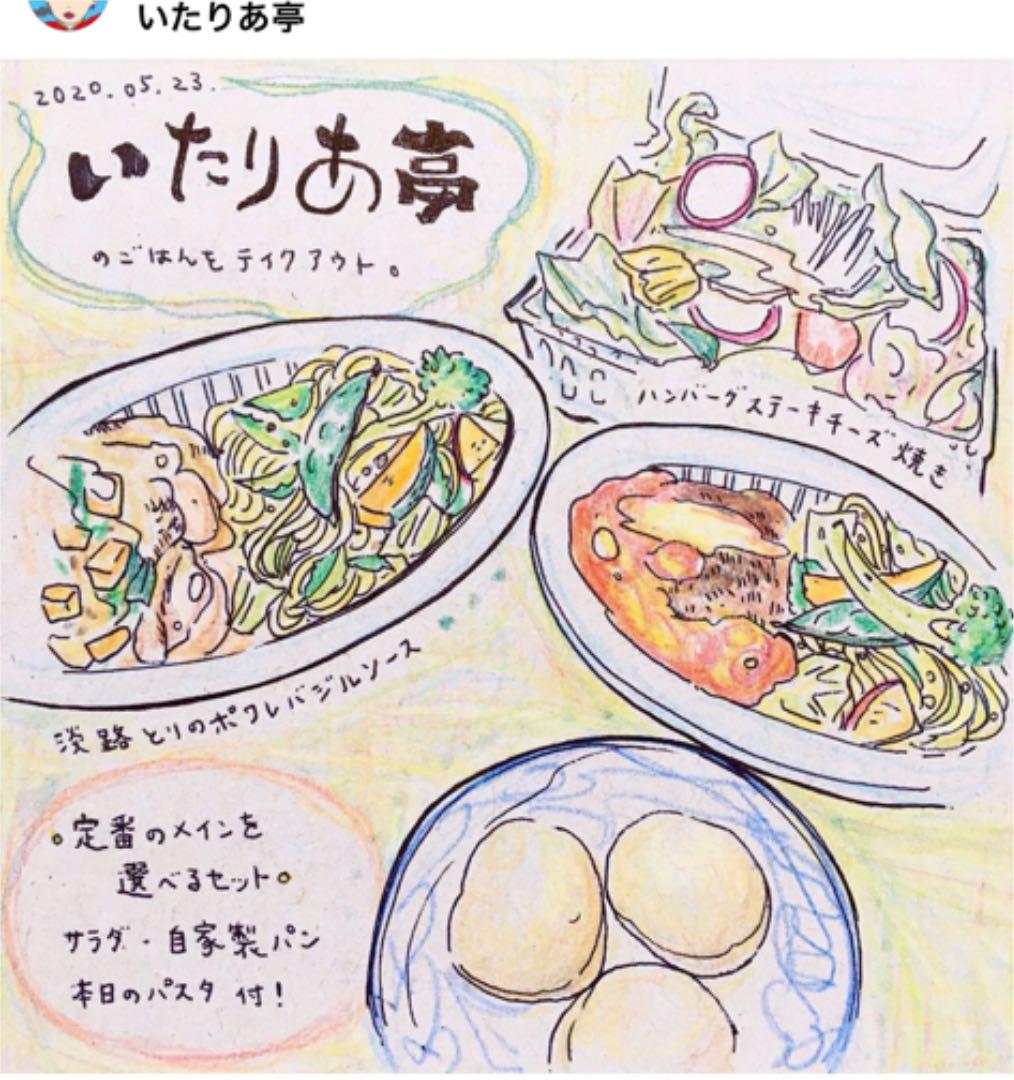 いたりあ亭
2020.05.23.
いたりあ亭
のごはんをテイクアウト。
ハンバーグステーキチーズ焼き
淡路とりのポワレバジルソース
。定番のメインを
選べるセット。
サラダ・自家製パン
本日のパスタ 付!